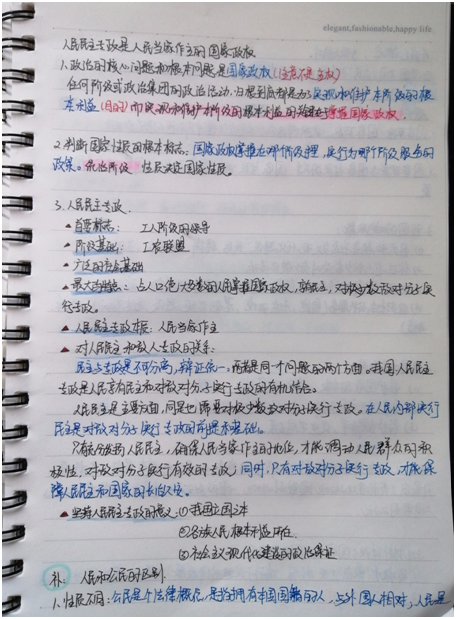 elegant,fashionable,happy life
人民民主专政是人民当家作主的国家政权
1.政治的核心问题和根本问题是国家政权(注意不是主权)
任何阶级或政治集团的政治活动,归根到底都是为了实现和维护本阶级的根
本利益(目的)而实现和维护本阶级的根本利益的关键在于掌握国家政权.
2.判断国家性质的根本标志:国家政权掌握在哪个阶级手里,实行为哪个阶级服务的
政策。统治阶级 性质决定国家性质。
3.人民民主专政.
▲首要标志: 工人阶级的领导
▲阶级基础: 工农联盟
▲广泛的群众基础
▲最大的特点: 占人口绝大多数的人民掌握国家政权,享民主,对极少数敌对分子实
行专政。
▲人民民主专政本质:人民当家作主
▲对人民民主和敌人专政的关系:
民主与专政是不可分离,辩证统一。两者是同一个问题的两个方面。我国人民民主
专政是人民享有民主和对敌对分子实行专政的有机结合。
人民民主是主要方面,同是也需要对极少数敌对分子实行专政。在人民内部实行
民主是对敌对分子实行专政的前提和基础。
只有充分发扬人民民主,确保人民当家作主的地位,才能调动人民群众的积
极性,对敌对分子实行有效的专政;同时,只有对敌对分子实行专政,才能保
障人民民主和国家的长治久安。
▲坚持人民民主专政的意义:①我国立国之本
②各族人民根本利益所在.
③为社会主义现代化建设的政治保证
补: 人民和公民的区别.
1.性质不同:公民是个法律概念,是指拥有本国国籍的人,与外国人相对,人民是